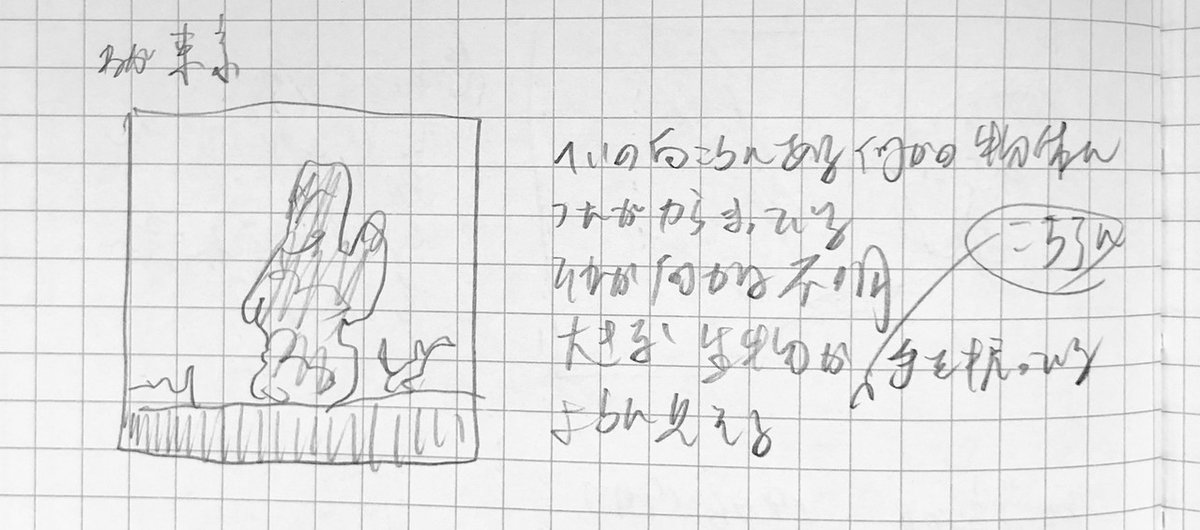 東京
へいの向こうにある何かの物体に
ツタがからまっている
それが何かは不明
こちらに
生物が 手を振っている
ように見える